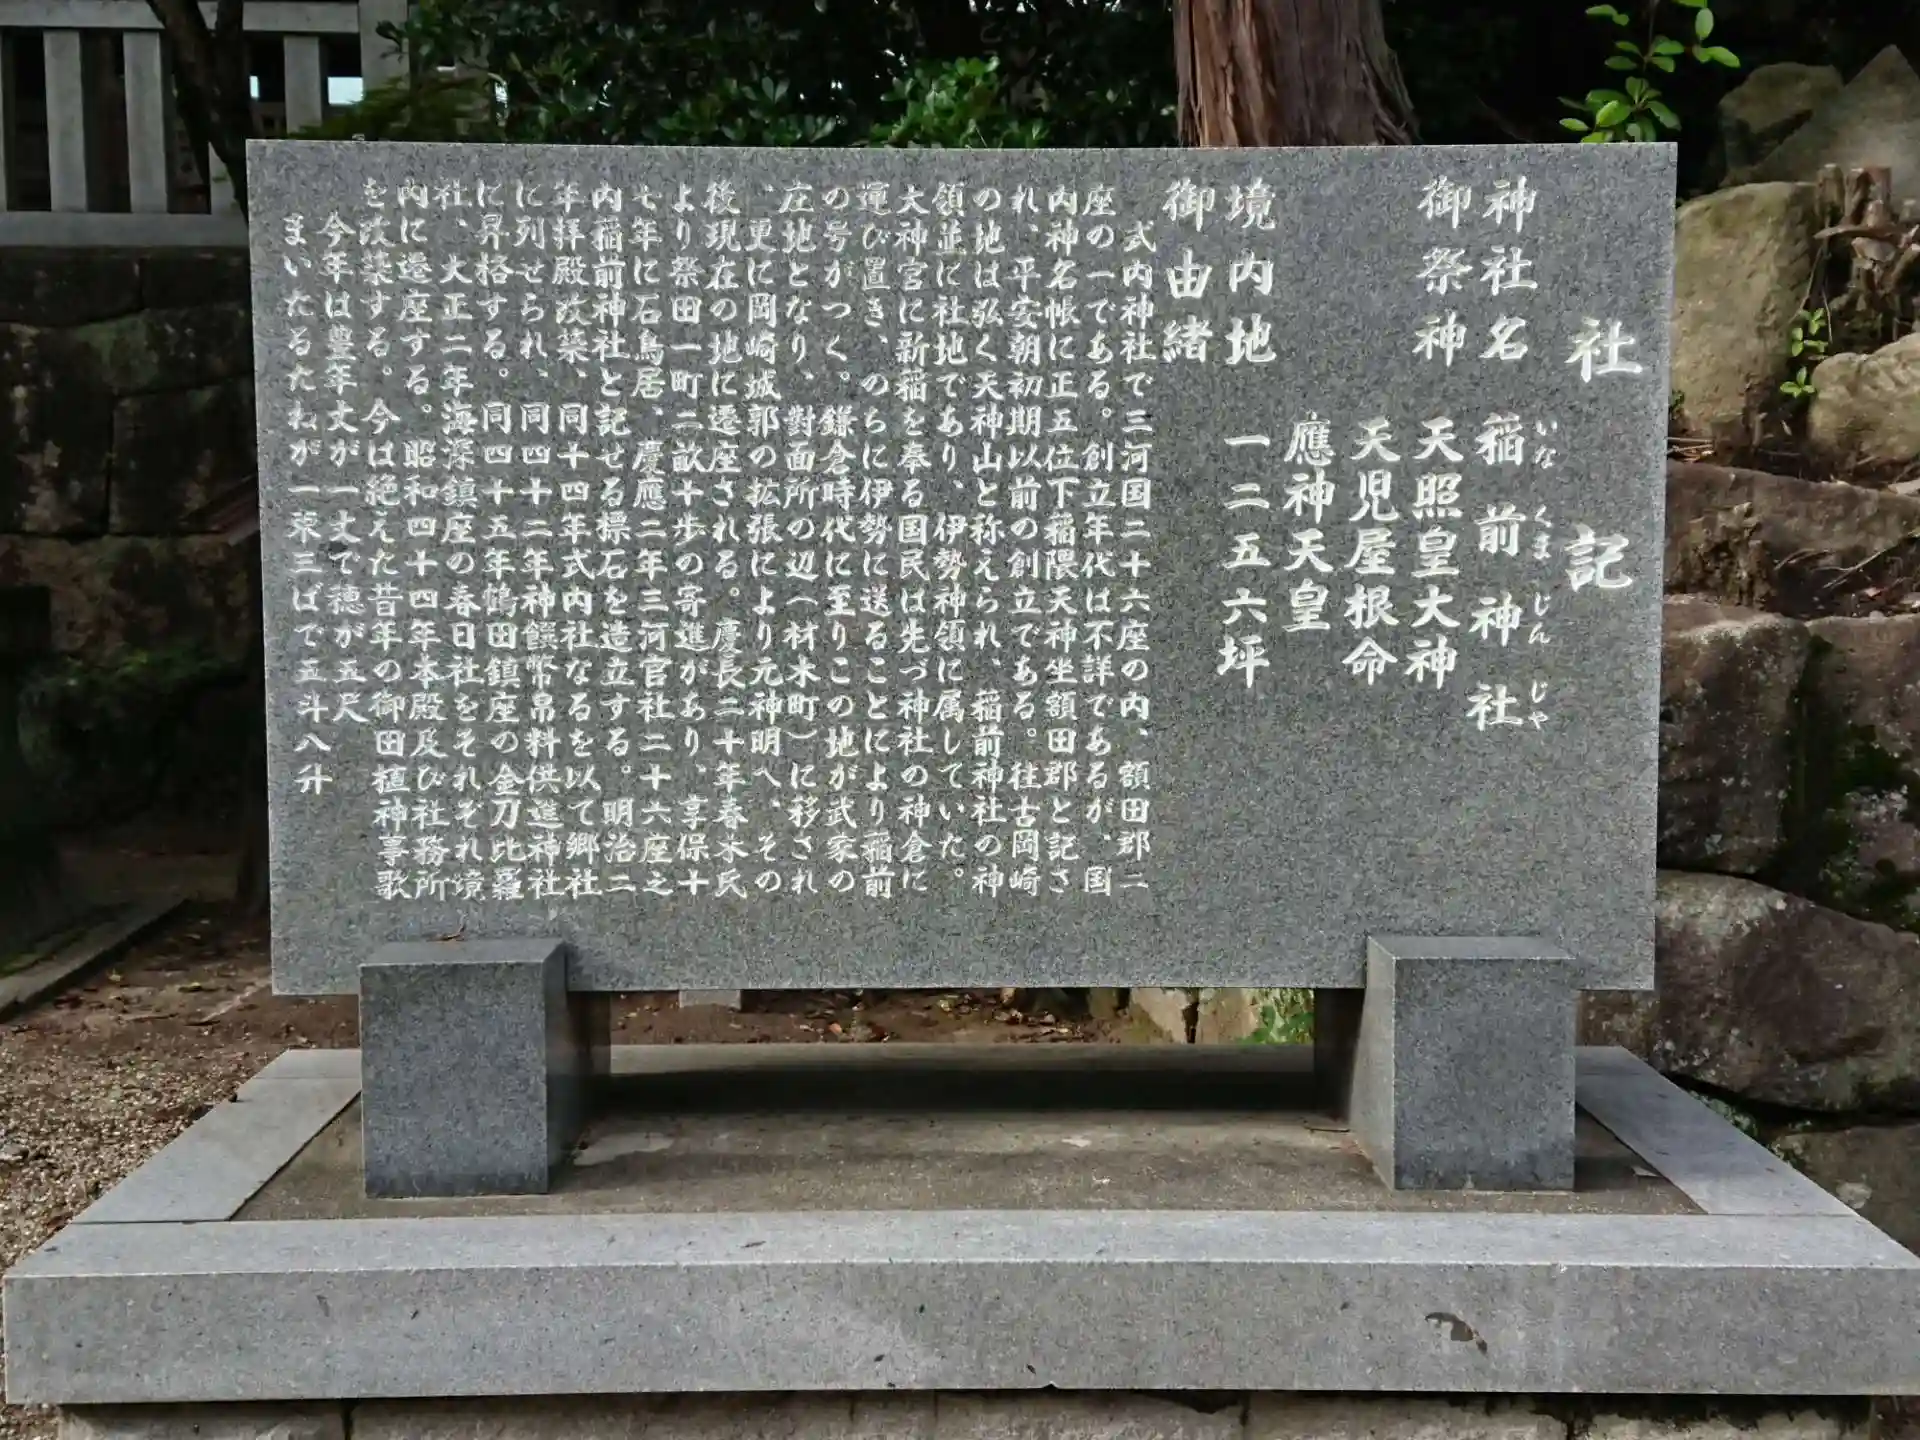 社記
神社名 稲前神社
いなくまじんじゃ
御祭神 天照皇大神
天児屋根命
應神天皇
境内地 一二五六坪
御由緒
式内神社で三河国二十六座の内、額田郡二
座の一である。創立年代は不詳であるが、国
内神名帳に正五位下稲隈天神坐額田郡と記さ
れ、平安朝初期以前の創立である。往古岡崎
の地は弘く天神山と称えられ、稲前神社の神
領並に社地であり、伊勢神領に属していた。
大神宮に新稲を奉る国民は先づ神社の神倉に
運び置き、のちに伊勢に送ることにより稲前
の号がつく。鎌倉時代に至りこの地が武家の
庄地となり、對面所の辺（材木町）に移され
、更に岡崎城郭の拡張により元神明へ、その
後現在の地に遷座される。慶長二十年春本氏
より祭田一町二畝十歩の寄進があり、享保十
七年に石鳥居、慶應二年三河官社二十六座之
内稲前神社と記せる標石を造立する。明治二
年拝殿改築、同十四年式内社なるを以て郷社
に列せられ、同四十二年神饌幣帛料供進神社
に昇格する。同四十五年鶴田鎮座の金刀比羅
社、大正二年海深鎮座の春日社をそれぞれ境
内に遷座する。昭和四十四年本殿及び社務所
を改築する。今は絶えた昔年の御田植神事歌
今年は豊年丈が一丈で穂が五尺
まいたるたねが一束三ばで五斗八升